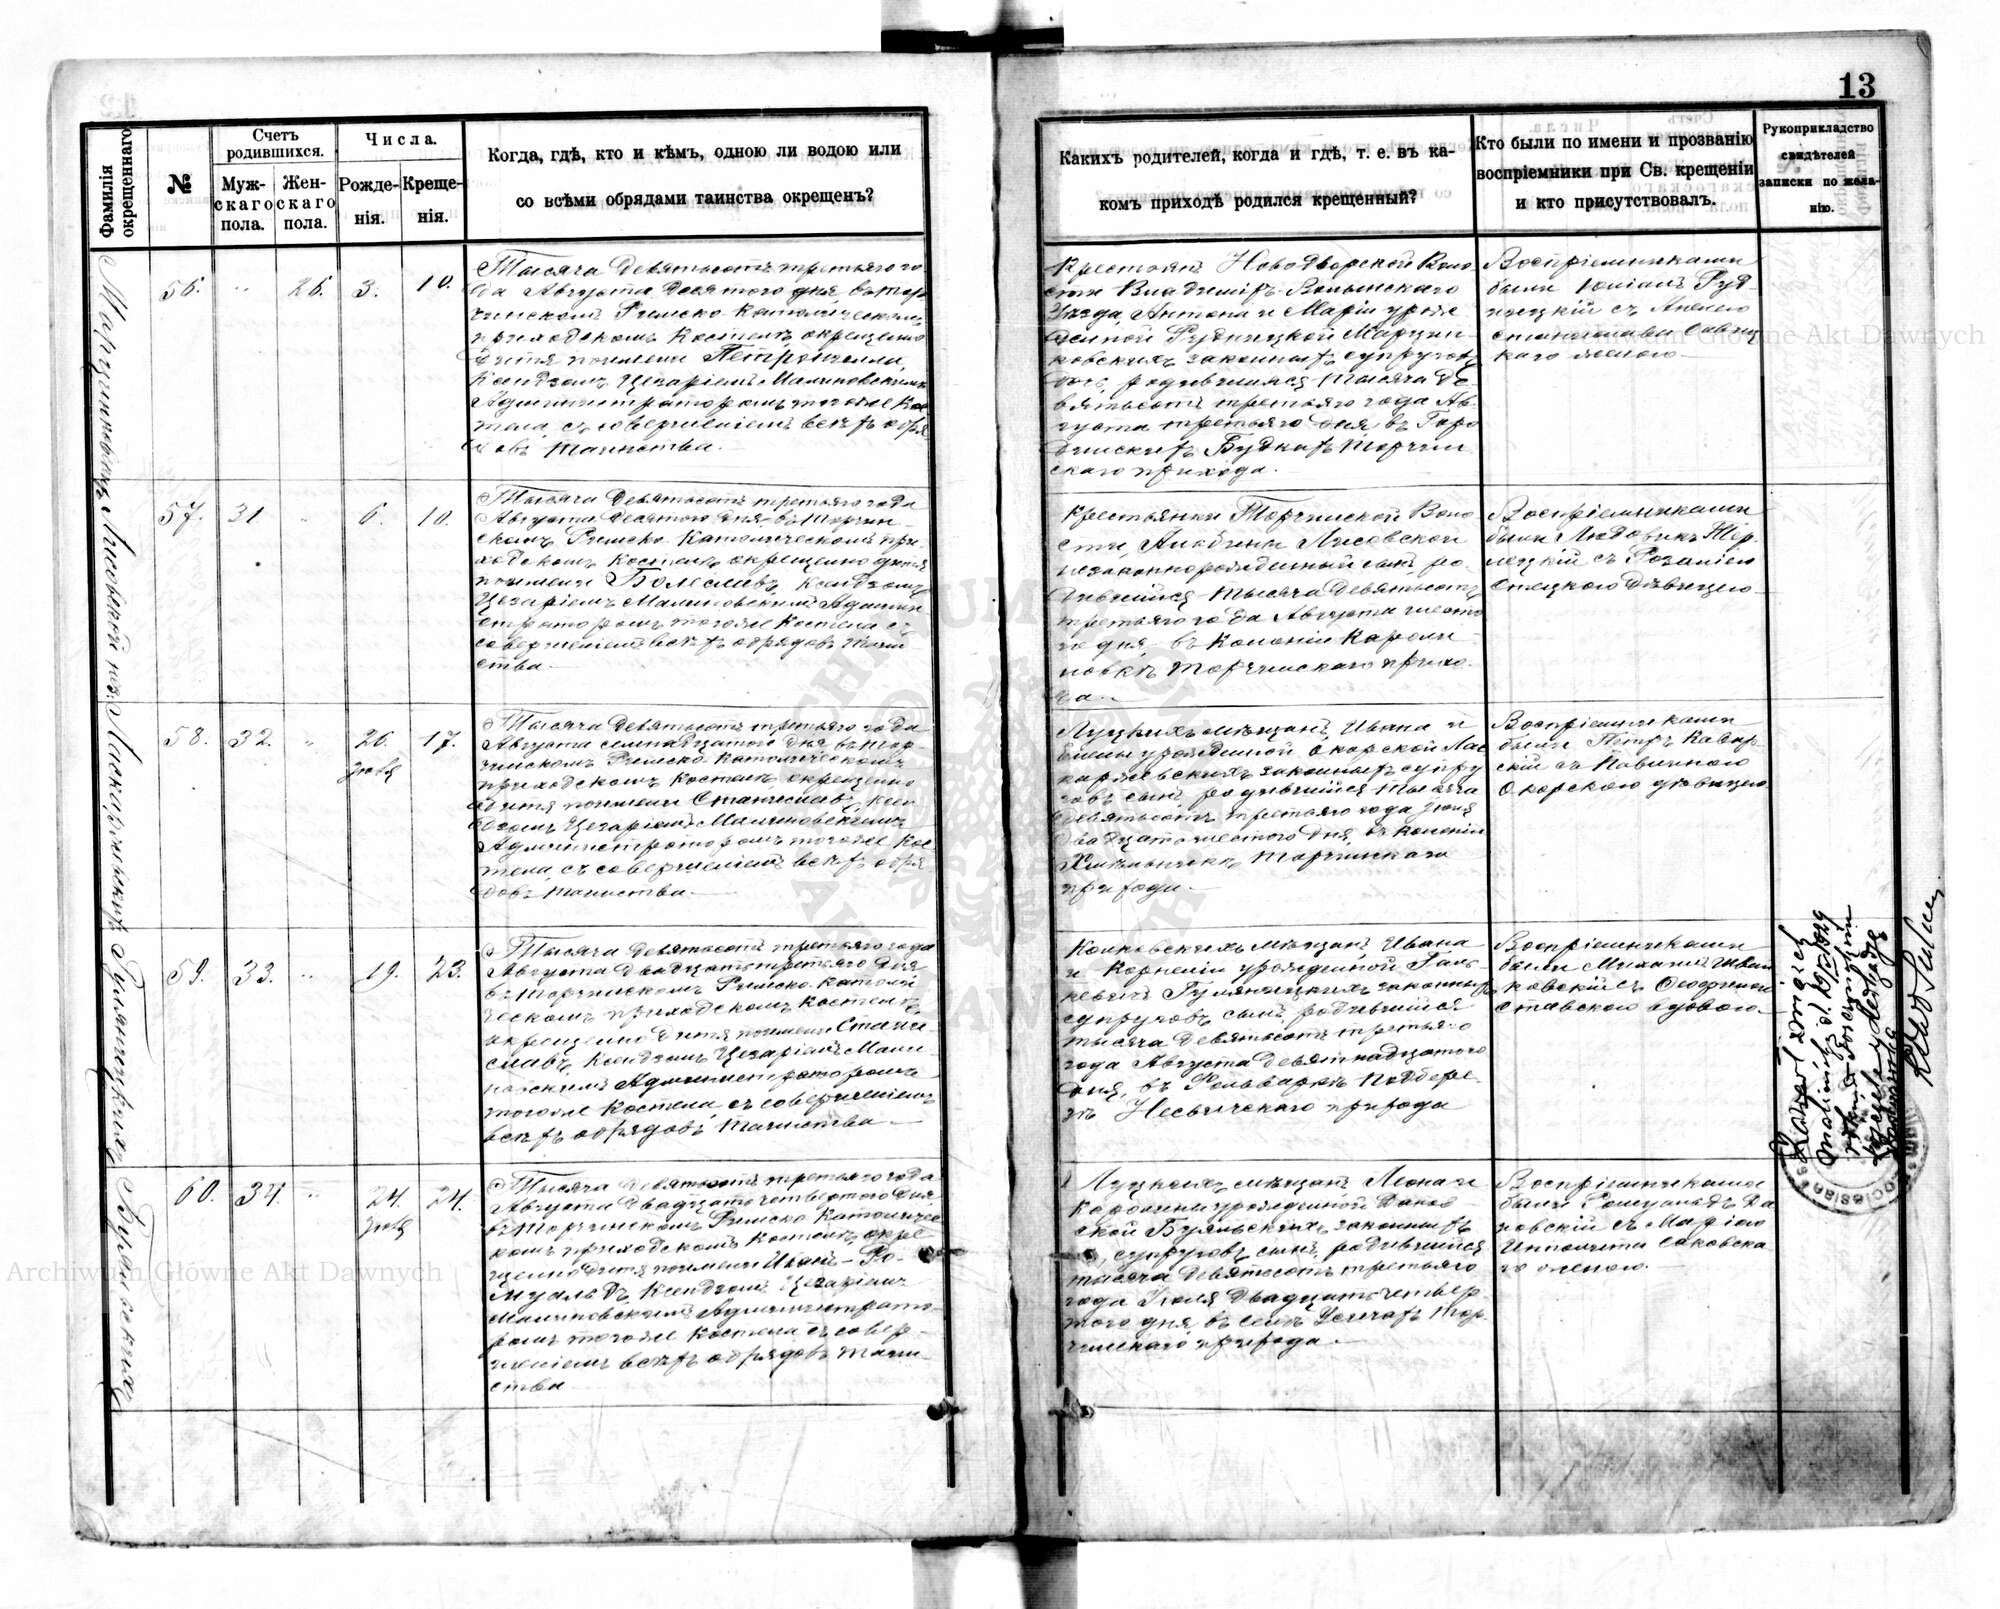 13
Фамилія окрещеннаго
№
Счетъ родившихся.
Муж-
скаго
пола.
Жен-
скаго
пола.
Числа.
Рожде-
нія.
Креще-
нія.
Когда, гдѣ, кто и кѣмъ, одною ли водою или
со всѣми обрядами таинства окрещенъ?
Какихъ родителей, когда и гдѣ, т. е. въ ка-
комъ приходѣ родился крещенный?
Кто были по имени и прозванію
воспріемники при Св. крещеніи
и кто присутствовалъ.
Рукоприкладство
свидѣтелей
записки по жела-
нію.
56. 26. 3. 10.
Тысяча девятьсотъ третьяго го-
да Августа десятого дня, въ Тор-
чинскомъ Римско-Католическомъ
приходскомъ Костелѣ окрещено
дитя именемъ Петронелла,
Ксендзомъ Цезаріемъ Малиновскимъ
Администраторомъ тогоже Кос-
тела, съ совершеніемъ всѣхъ обря
довъ таинства.
Крестьянъ Новодворской Воло-
сти Владиміръ-Волынскаго
Уѣзда, Антона и Маріи урож
денной Рудницкой Марцин-
ковскихъ законныхъ супруговъ
дочь, родившаяся тысяча де-
вятьсотъ третьяго года Ав-
густа третьяго дня въ Горо
дискихъ Будкахъ Торчин
скаго прихода.
Воспріемниками
были Юліанъ Руд-
ницкій съ
Станислава
каго женою.
57. 31. 6. 10.
Тысяча девятьсотъ третьяго года
Августа десятого дня въ Торчин-
скомъ Римско-Католическомъ при-
ходскомъ Костелѣ окрещено дитя
именемъ Болеславъ, Ксендзомъ
Цезаріемъ Малиновскимъ Админи-
страторомъ тогоже Костела съ
совершеніемъ всѣхъ обрядовъ таин-
ства.
Крестьянки Торчинской Воло-
сти, Альбины Лисовской
незаконнорожденный сынъ, ро-
дившійся тысяча девятьсотъ
третьяго года Августа шесто
го дня, въ Колоніи Кароли-
новкѣ Торчинскаго прихо-
да.
Воспріемниками
были Людовикъ
съ Розаліею
дѣвицею.
58. 32. 26. Іюля 17.
Тысяча девятьсотъ третьяго года
Августа семнадцатого дня въ Тор-
чинскомъ Римско-Католическомъ
приходскомъ Костелѣ, окрещено
дитя именемъ Станиславъ, Ксен
дзомъ Цезаріемъ Малиновскимъ
Администраторомъ тогоже Кос-
тела, съ совершеніемъ всѣхъ обря
довъ таинства.
Луцкихъ мѣщанъ, Ивана и
урожденной Окорской
законныхъ супру
говъ сынъ, родившійся тысяча
девятьсотъ третьяго года Іюля
двадцать шестого дня, въ колоніи
Торчинскаго
прихода.
Воспріемниками
были Петръ
скій съ Павлиною
Окорскою дѣвицею.
59. 33. 19. 23.
Тысяча девятьсотъ третьяго года
Августа двадцать третьяго дня
въ Торчинскомъ Римско-Католи
ческомъ приходскомъ Костелѣ,
окрещено дитя именемъ Стани
славъ, Ксендзомъ Цезаріемъ Мали-
новскимъ Администраторомъ
тогоже Костела, съ совершеніемъ
всѣхъ обрядовъ таинства.
мѣщанъ, Ивана
и Корнеліи урожденной
законныхъ
супруговъ сынъ, родившійся
тысяча девятьсотъ третьяго
года Августа девятнадцатого
дня, въ Фольваркѣ Поддубе-
Несвичскаго прихода
Воспріемниками
были Михаилъ
съ
вдовою.
60. 34. 24. Іюля 24.
Тысяча девятьсотъ третьяго года
Августа двадцать четвертого дня
въ Торчинскомъ Римско-Католичес
комъ приходскомъ Костелѣ, окре
щено дитя именемъ Иванъ-Ро-
муальдъ, Ксендзомъ Цезаріемъ
Малиновскимъ Администрато-
ромъ тогоже Костела съ совер-
шеніемъ всѣхъ обрядовъ таин-
ства.
Луцкихъ мѣщанъ Леона и
Каролины урожденной
законныхъ
супруговъ сынъ, родившійся
тысяча девятьсотъ третьяго
года Іюля двадцать четвер-
того дня, въ селѣ Усичахъ Тор-
чинскаго прихода.
Воспріемниками
были Ромуальдъ
съ Маріею
Ипполита
го женою.
Archiwum Główne Akt Dawnych
Archiwum Główne Akt Dawnych